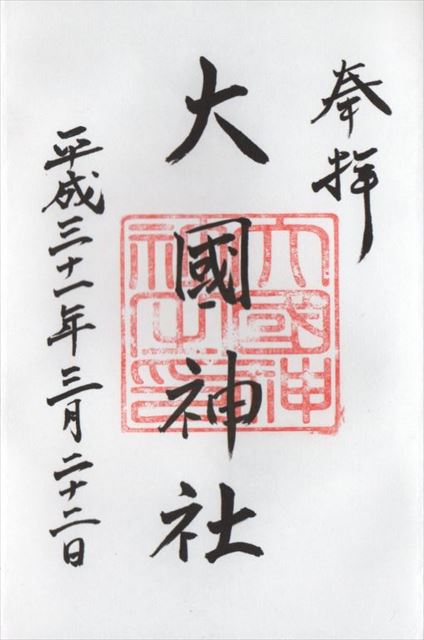 奉拝
大國神社
大國神社之印
平成三十一年三月二十二日